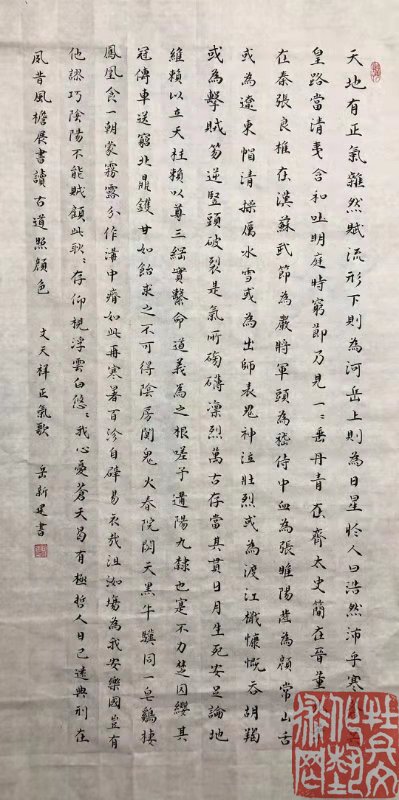 天地有正氣雜然賦流形下則為河岳上則為日星於人曰浩然沛乎塞
皇路當清夷含和吐明庭時窮節乃見一一垂丹青在齊太史簡在晉董
在秦張良椎在漢蘇武節為嚴將軍頭為嵇侍中血為張睢陽齒為顏常山舌
或為遼東帽清操厲冰雪或為出師表鬼神泣壯烈或為渡江楫慷慨吞胡羯
或為擊賊笏逆豎頭破裂是氣所磅礴凜烈萬古存當其貫日月生死安足論地
維賴以立天柱賴以尊三綱實繫命道義為之根嗟予遘陽九隸也實不力楚囚纓其
冠傳車送窮北鼎鑊甘如飴求之不可得陰房闃鬼火春院閟天黑牛驥同一皂鷄棲
鳳凰食一朝蒙霧露分作溝中瘠如此再寒暑百沴自辟易哀哉沮洳場為我安樂國豈有
他謬巧陰陽不能賊顧此耿〻存仰視浮雲白悠〻我心憂蒼天曷有極哲人日已遠典刑在
夙昔風檐展書讀古道照顏色 文天祥正氣歌 岳新建書